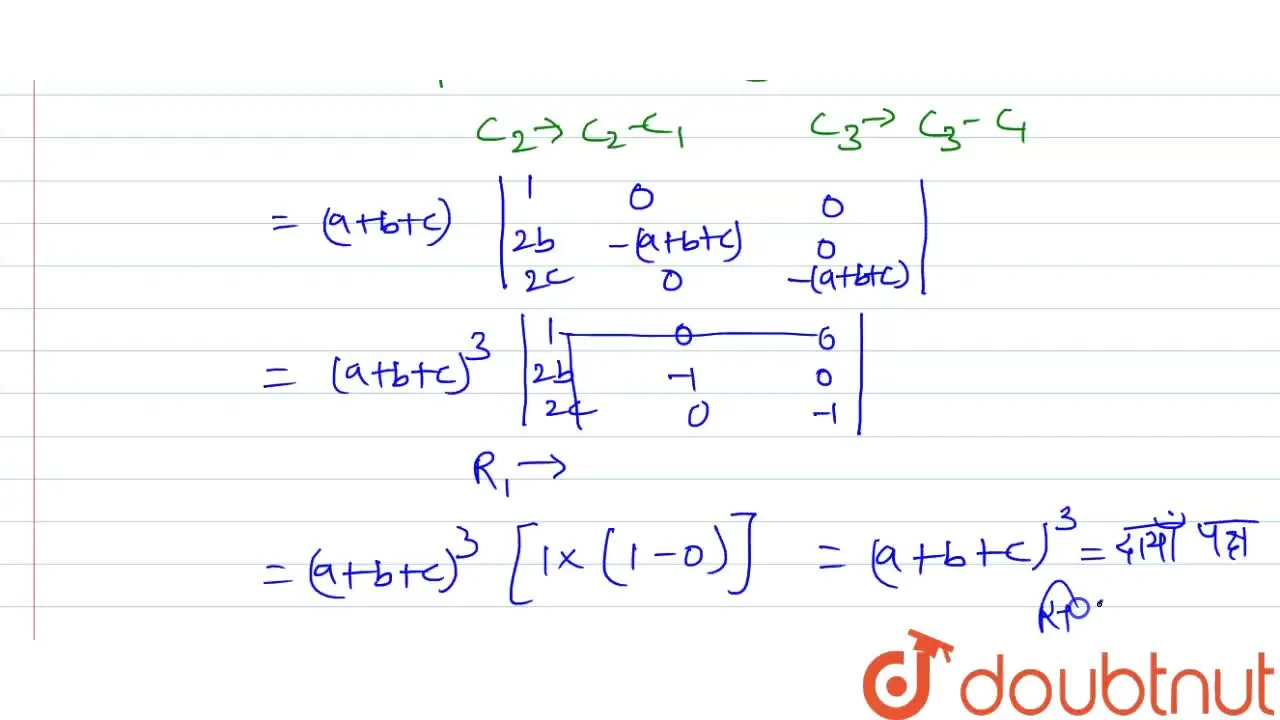 C₂ → C₂ - C₁ C₃ → C₃ - C₁
= (a+b+c) | 1 0 0 |
| 2b -(a+b+c) 0 |
| 2c 0 -(a+b+c) |
= (a+b+c)³ | 1 0 0 |
| 2b -1 0 |
| 2c 0 -1 |
R₁ →
= (a+b+c)³ [1 × (1 - 0)] = (a+b+c)³ = दायाँ पक्ष
doubtnut